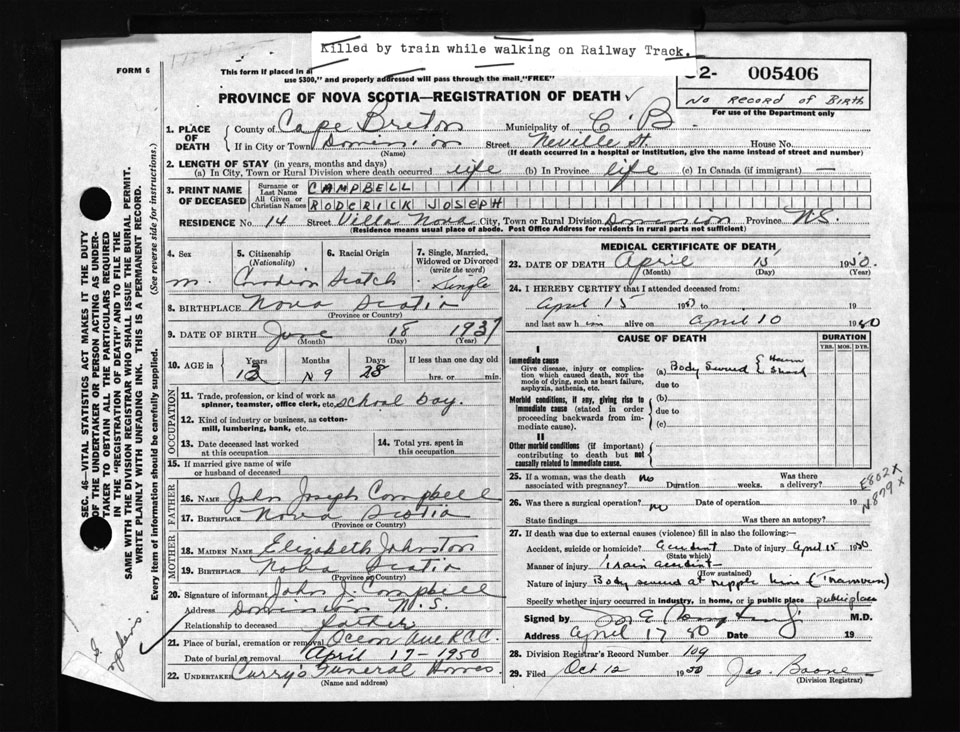 Killed by train while walking on Railway Track.
FORM 6
This form if placed in a
use $300," and properly addressed will pass through the mail "FREE"
2- 005406
No Record of Birth
For use of the Department only
PROVINCE OF NOVA SCOTIA—REGISTRATION OF DEATH
1. PLACE OF DEATH
County of Cape Breton Municipality of C B
If in City or Town Dominion Street Neville St. House No.
(Name) (If death occurred in a hospital or institution, give the name instead of street and number)
2. LENGTH OF STAY (in years, months and days)
(a) In City, Town or Rural Division where death occurred life (b) In Province life (c) In Canada (if immigrant) —
3. PRINT NAME OF DECEASED
Surname or Last Name CAMPBELL
All Given or Christian Names RODERICK JOSEPH
RESIDENCE No. 14 Street Villa Nova City, Town or Rural Division Dominion Province N.S.
(Residence means usual place of abode. Post Office Address for residents in rural parts not sufficient)
4. Sex
m.
5. Citizenship (Nationality)
Canadian
6. Racial Origin
Scotch
7. Single, Married, Widowed or Divorced (write the word)
Single
8. BIRTHPLACE Nova Scotia
(Province or Country)
9. DATE OF BIRTH June 18 1937
(Month) (Day) (Year)
10. AGE in
Years Months Days If less than one day old
12 9 28 hrs. or min.
OCCUPATION
11. Trade, profession, or kind of work as spinner, teamster, office clerk, etc. school boy.
12. Kind of industry or business, as cotton-mill, lumbering, bank, etc.
13. Date deceased last worked at this occupation
14. Total yrs. spent in this occupation
15. If married give name of wife or husband of deceased
FATHER
16. NAME John Joseph Campbell
17. BIRTHPLACE Nova Scotia
(Province or Country)
MOTHER
18. MAIDEN NAME Elizabeth Johnston
19. BIRTHPLACE Nova Scotia
(Province or Country)
20. Signature of informant John J. Campbell
Address Dominion N.S.
Relationship to deceased father
21. Place of burial, cremation or removal Ocean Ave R.C.C.
Date of burial or removal April 17-1950
22. UNDERTAKER Curry's Funeral Homes
(Name and address)
MEDICAL CERTIFICATE OF DEATH
23. DATE OF DEATH April 15, 1950.
(Month) (Day) (Year)
24. I HEREBY CERTIFY that I attended deceased from:
April 15 1950 to 19
and last saw him alive on April 10 1950
CAUSE OF DEATH
DURATION
YRS. MOS. DYS.
I
Immediate cause
Give disease, injury or complication which caused death, NOT the mode of dying, such as heart failure, asphyxia, asthenia, etc.
(a) Body Severed
due to
Morbid conditions, if any, giving rise to immediate cause (stated in order proceeding backwards from immediate cause).
(b)
due to
(c)
II
Other morbid conditions (if important) contributing to death but not causally related to immediate cause.
25. If a woman, was the death associated with pregnancy? no Duration weeks. Was there a delivery?
E802X
N879X
26. Was there a surgical operation? no Date of operation 19
State findings Was there an autopsy?
27. If death was due to external causes (violence) fill in also the following:
Accident, suicide or homicide? Accident Date of injury April 15 1950
(State which)
Manner of injury Train accident
(How sustained)
Nature of injury Body severed at nipple line
Specify whether injury occurred in industry, in home, or in public place public place
Signed by M.D.
Address April 17 50 Date 19
28. Division Registrar's Record Number 109
29. Filed Oct 12 1950 Jas. Boone
(Division Registrar)
SEC. 46—VITAL STATISTICS ACT MAKES IT THE DUTY
OF THE UNDERTAKER OR PERSON ACTING AS UNDER-
TAKER TO OBTAIN ALL THE PARTICULARS REQUIRED
IN THE "REGISTRATION OF DEATH" AND TO FILE THE
SAME WITH THE DIVISION REGISTRAR WHO SHALL ISSUE THE BURIAL PERMIT.
WRITE PLAINLY WITH UNFADING INK. THIS IS A PERMANENT RECORD.
Every item of information should be carefully supplied. (See reverse side for instructions.)